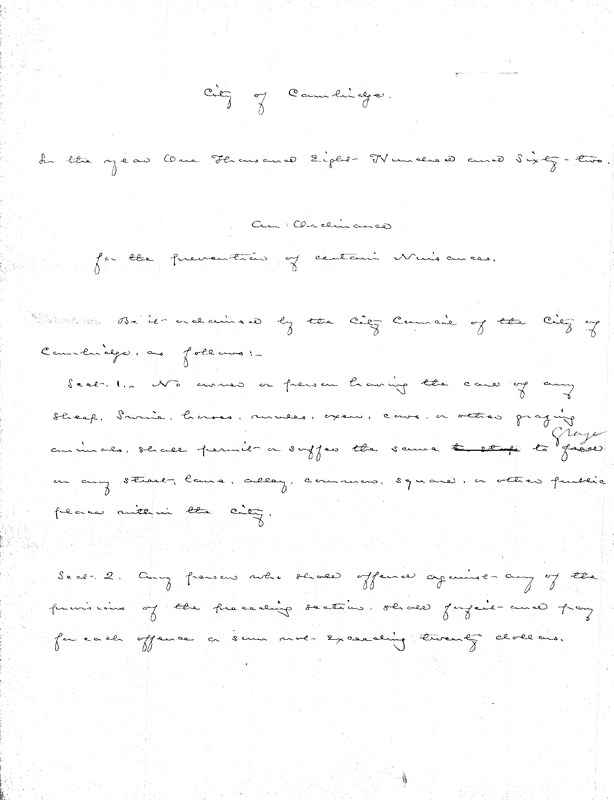 City of Cambridge.
In the year One Thousand Eight Hundred and Sixty-two.
An Ordinance
for the prevention of certain Nuisances.
Be it ordained by the City Council of the City of
Cambridge, as follows:-
Sect. 1. No owner or person having the care of any
sheep, swine, horses, mules, oxen, cows, or other grazing
animals, shall permit or suffer the same to stop to feed graze
on any street, lane, alley, common, square, or other public
place within the City.
Sect. 2. Any person who shall offend against any of the
provisions of the preceding section, shall forfeit and pay
for each offence a sum not exceeding twenty dollars.